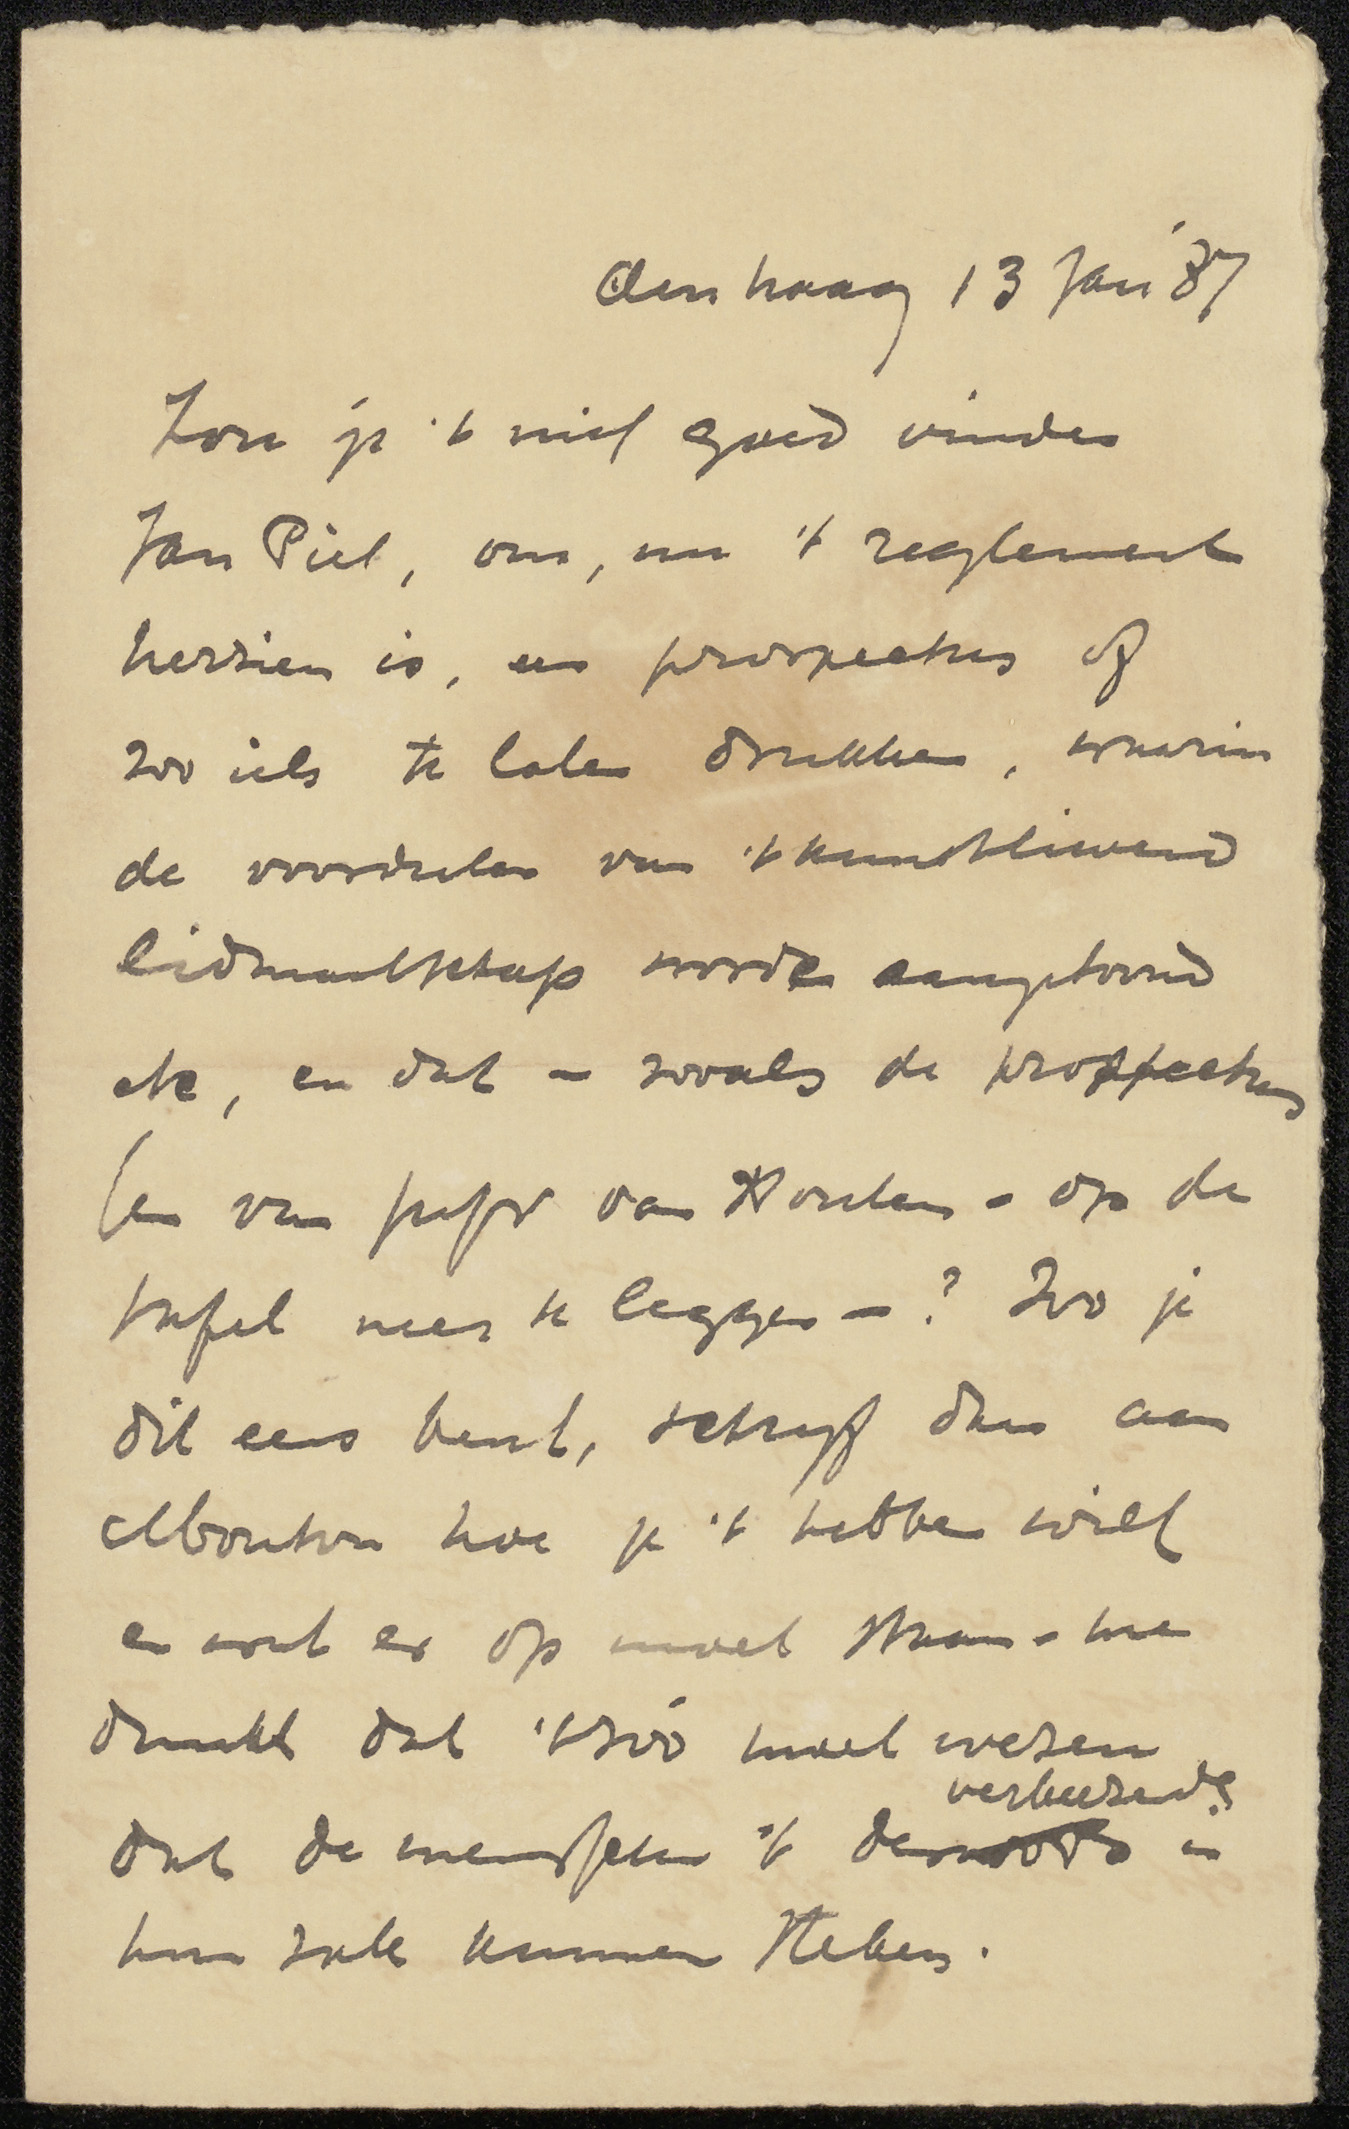 den haag 13 Jan '87
Zou je 't niet goed vinden
Jan Piet, om, nu 't reglement
herzien is, een prospectus of
zoo iets te laten drukken, waarin
de voordeelen van 't kunstlievend
lidmaatschap worden aangetoond
etc, en dat – zooals de prospectus
van van Houten – op de
tafel neer te leggen – ? Zoo je
dit eens bent, schrijf dan aan
Mouton hoe je 't hebben wilt
en wat er op moet staan – me
dunkt dat 't zóó moet wezen
verbeezend
dat de menschen 't in
hun zak kunnen steken.